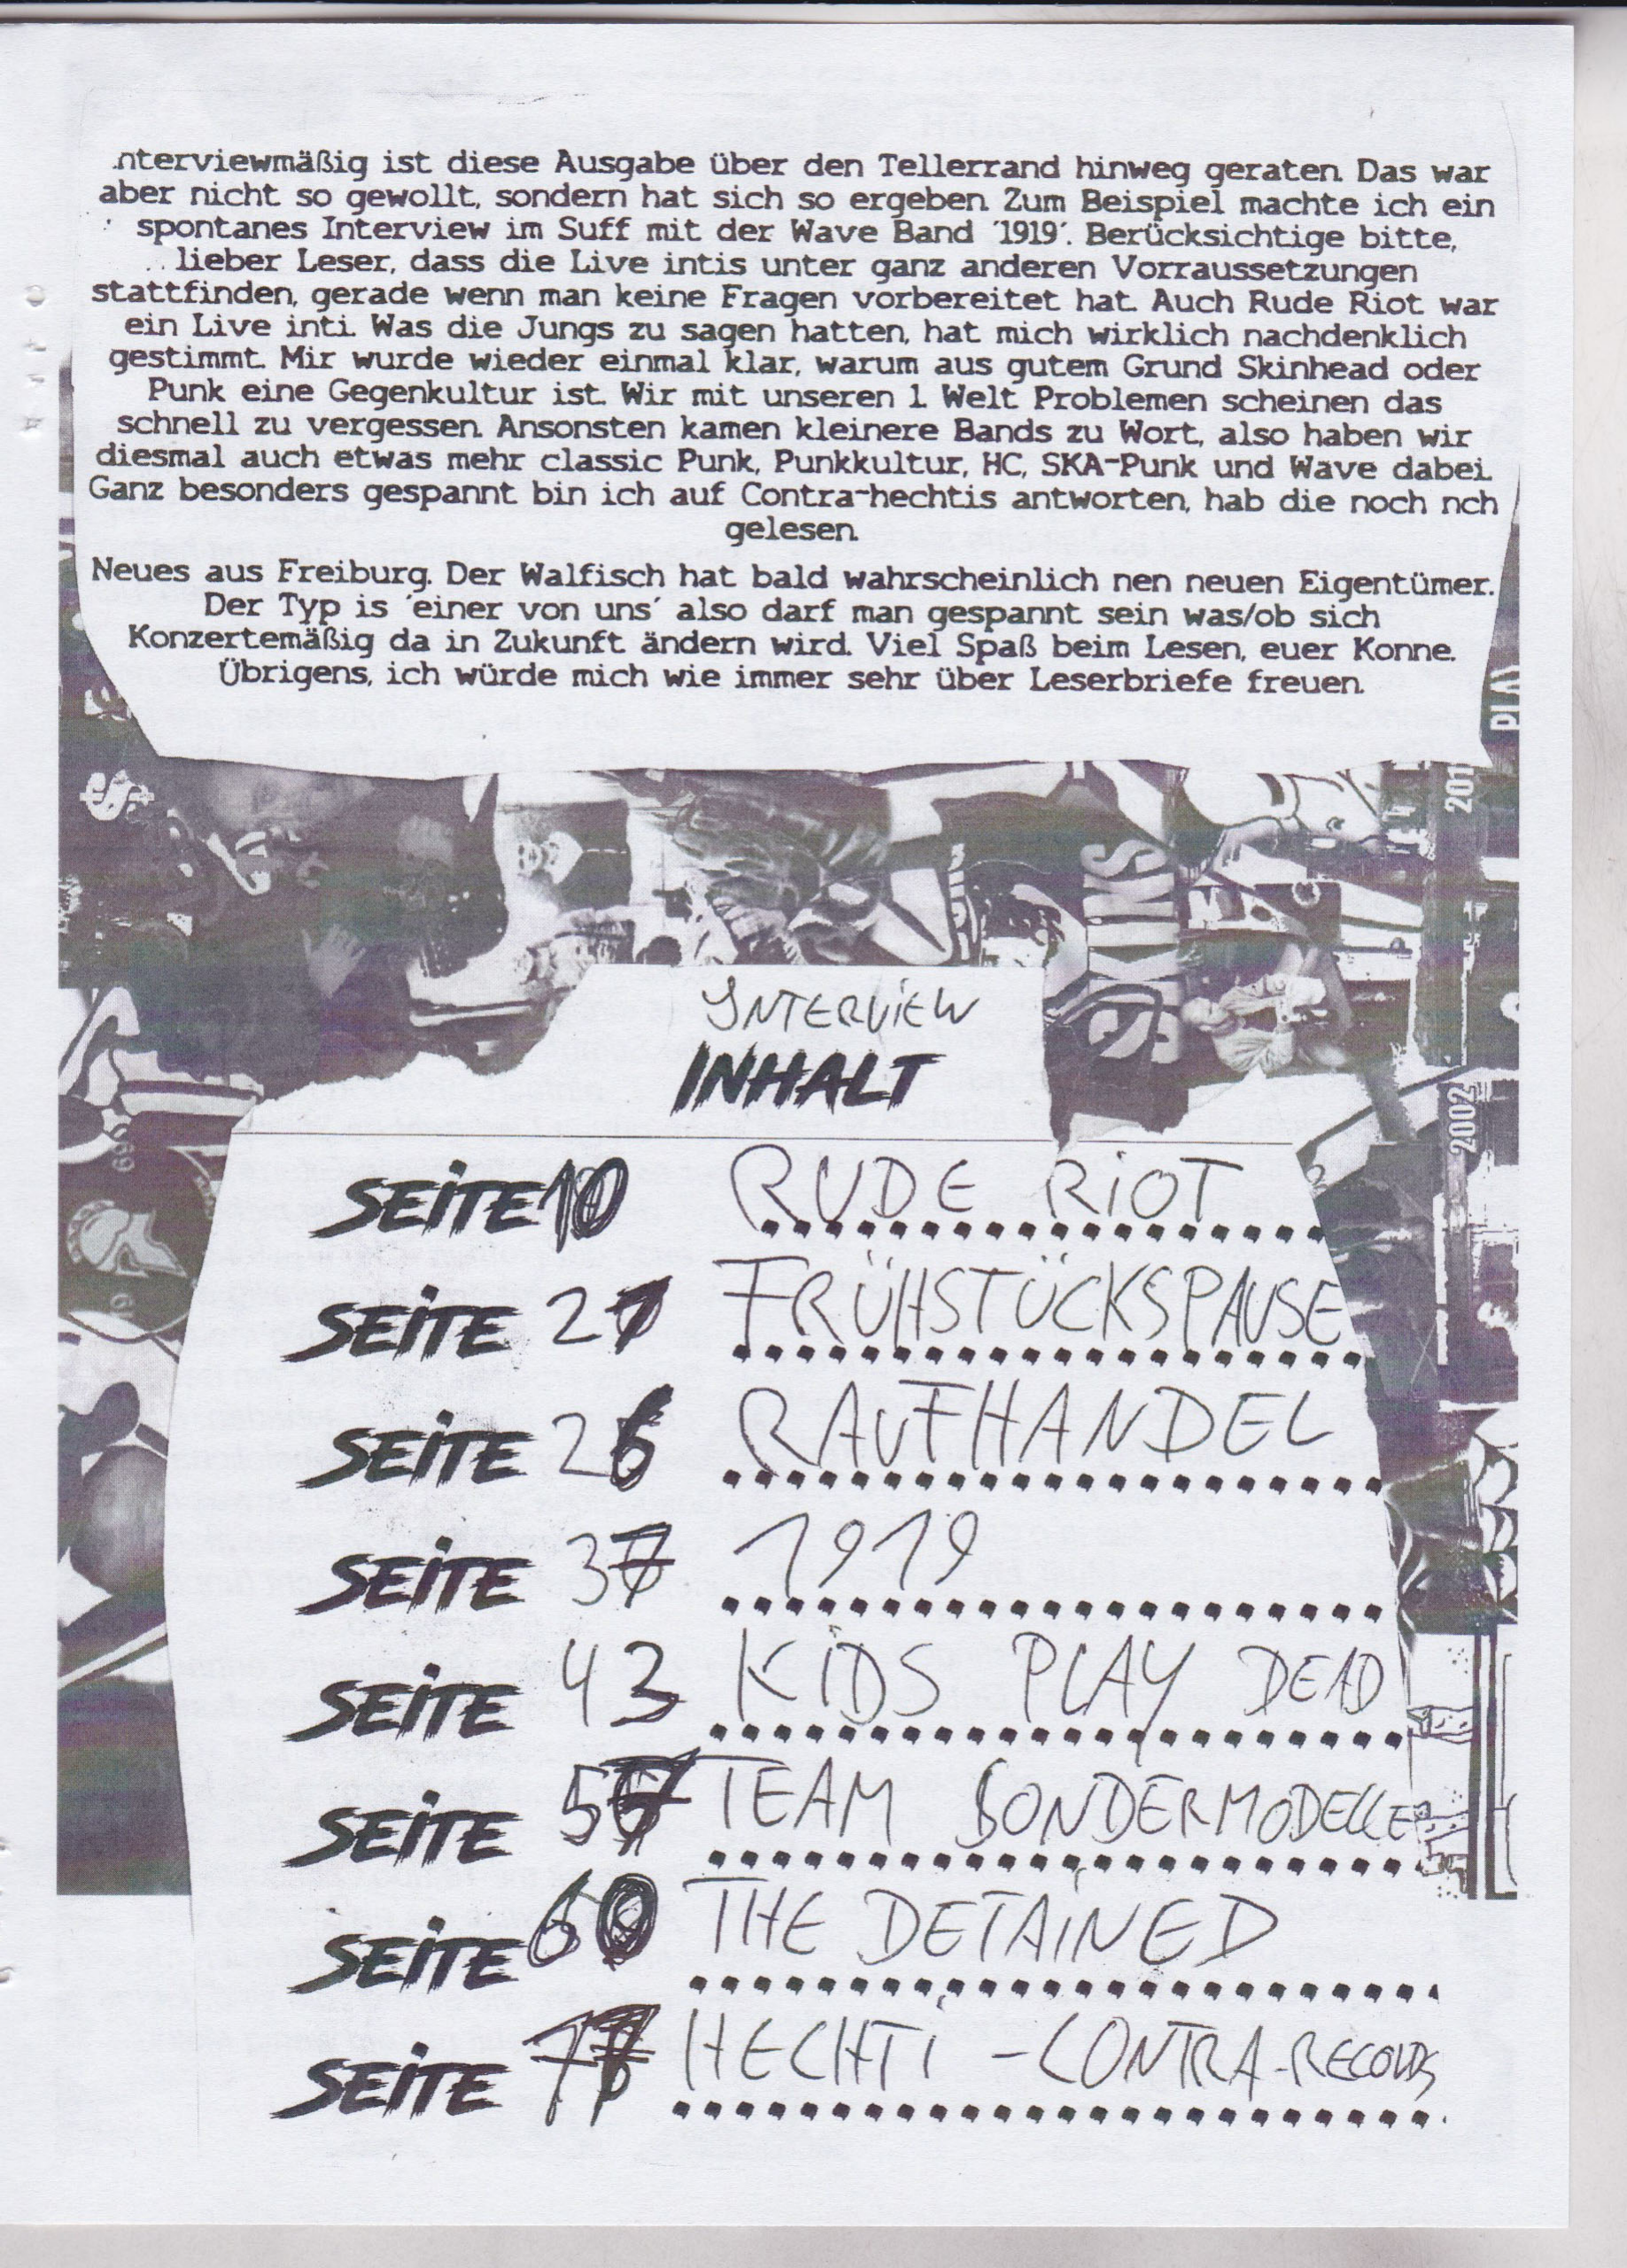 nterviewmäßig ist diese Ausgabe über den Tellerrand hinweg geraten. Das war
aber nicht so gewollt, sondern hat sich so ergeben. Zum Beispiel machte ich ein
spontanes Interview im Suff mit der Wave Band '1919'. Berücksichtige bitte,
lieber Leser, dass die Live intis unter ganz anderen Vorraussetzungen
stattfinden, gerade wenn man keine Fragen vorbereitet hat. Auch Rude Riot war
ein Live inti. Was die Jungs zu sagen hatten, hat mich wirklich nachdenklich
gestimmt. Mir wurde wieder einmal klar, warum aus gutem Grund Skinhead oder
Punk eine Gegenkultur ist. Wir mit unseren 1. Welt Problemen scheinen das
schnell zu vergessen. Ansonsten kamen kleinere Bands zu Wort, also haben wir
diesmal auch etwas mehr classic Punk, Punkkultur, HC, SKA-Punk und Wave dabei.
Ganz besonders gespannt bin ich auf Contra-hechtis antworten, hab die noch nch
gelesen.
Neues aus Freiburg. Der Walfisch hat bald wahrscheinlich nen neuen Eigentümer.
Der Typ is 'einer von uns' also darf man gespannt sein was/ob sich
Konzertemäßig da in Zukunft ändern wird. Viel Spaß beim Lesen, euer Konne.
Übrigens, ich würde mich wie immer sehr über Leserbriefe freuen.
201
SKINS
2002
69
INTERVIEW
INHALT
SEITE 10 RUDE RIOT
SEITE 21 FRÜHSTÜCKSPAUSE
SEITE 26 RAUFHANDEL
SEITE 37 1919
SEITE 43 KIDS PLAY DEAD
SEITE 57 TEAM SONDERMODELLE
SEITE 60 THE DETAINED
SEITE HECHTI - CONTRA-RECORDS